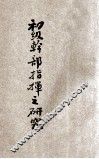 初級幹部指揮之研究